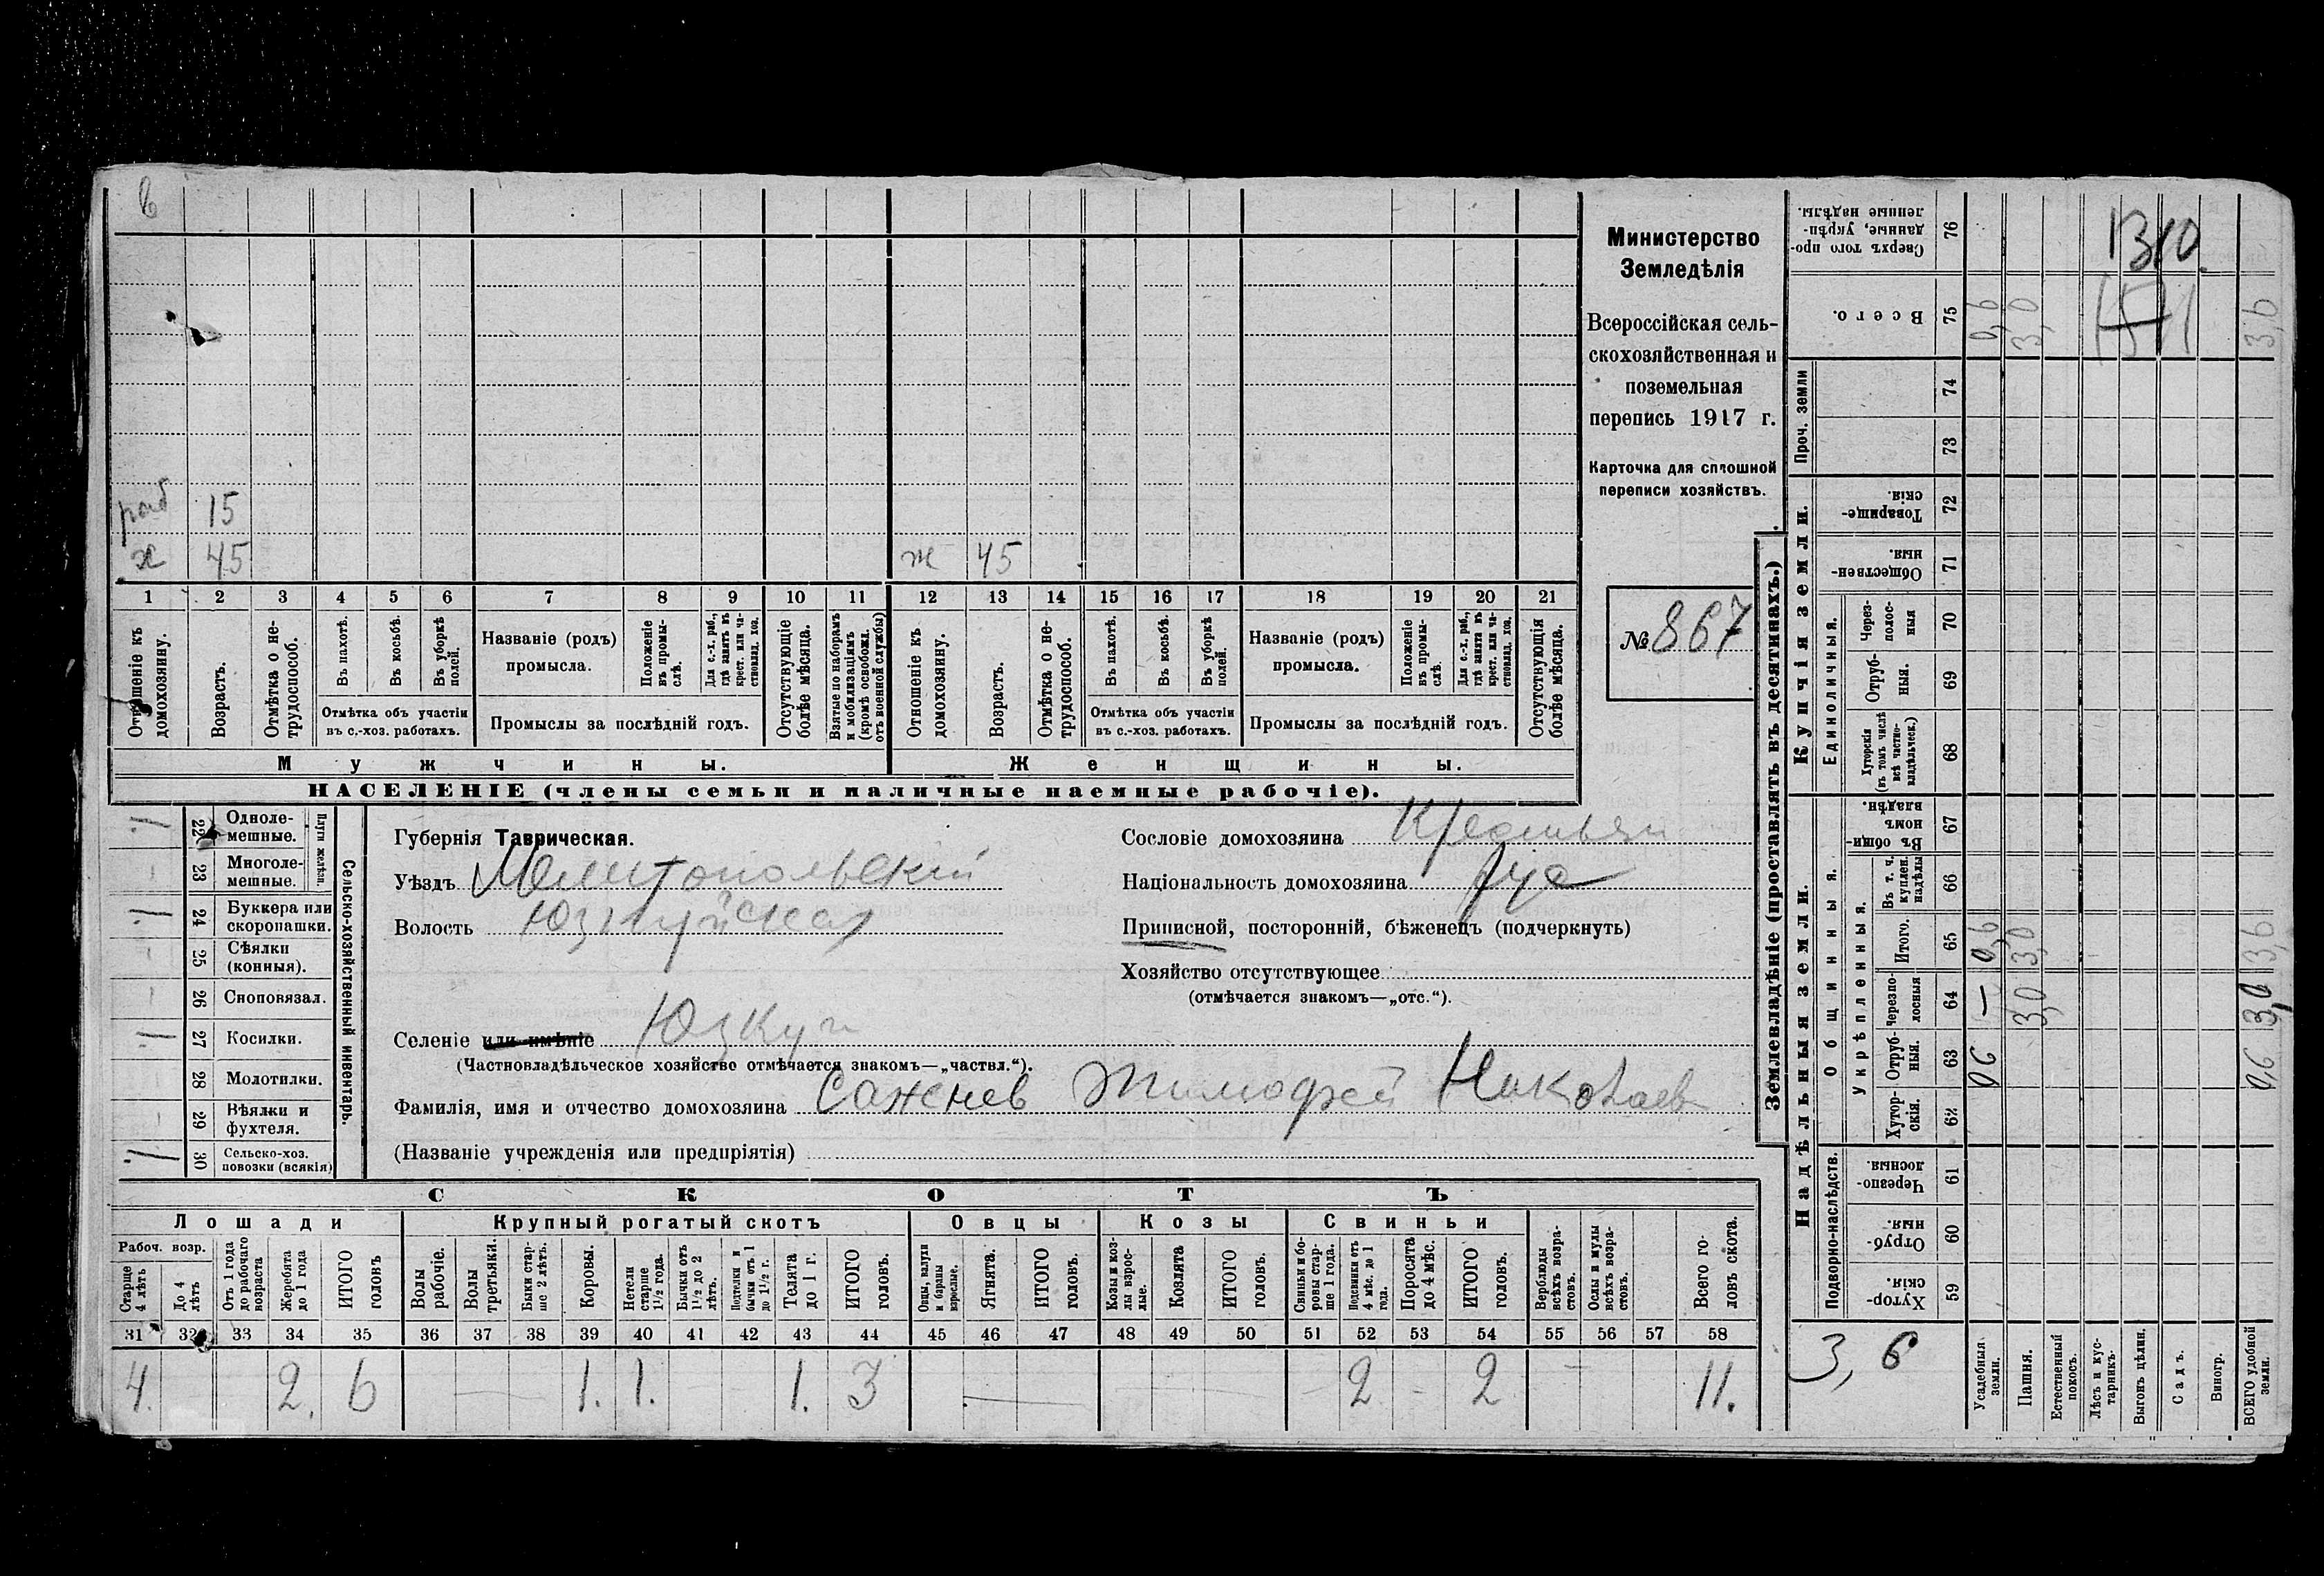 Министерство
Земледѣлія
Всероссійская сель-
скохозяйственная и
поземельная
перепись 1917 г.
Карточка для сплошной
переписи хозяйствъ.
№ 867
раб 15
х 45
ж 45
1 2 3 4 5 6 7 8 9 10 11 12 13 14 15 16 17 18 19 20 21
Отношеніе къ домохозяину.
Возрастъ.
Отмѣтка о не-трудоспособ.
Въ пахотѣ.
Въ косьбѣ.
Въ уборкѣ полей.
Отмѣтка объ участіи
въ с.-хоз. работахъ.
Названіе (родъ)
промысла.
Положеніе въ промы-слѣ.
Для с.-х. раб., гдѣ занятъ въ крест. или ча-стновлад. хоз.
Промыслы за послѣдній годъ.
Отсутствующіе болѣе мѣсяца.
Взятые по наборамъ и мобилизаціямъ (кромѣ освобожд. отъ военной службы)
Отношеніе къ домохозяину.
Возрастъ.
Отмѣтка о не-трудоспособ.
Въ пахотѣ.
Въ косьбѣ.
Въ уборкѣ полей.
Отмѣтка объ участіи
въ с.-хоз. работахъ.
Названіе (родъ)
промысла.
Положеніе въ промы-слѣ.
Для с.-х. раб., гдѣ занята въ крест. или ча-стновлад. хоз.
Промыслы за послѣдній годъ.
Отсутствующія болѣе мѣсяца.
Мужчины.
Женщины.
НАСЕЛЕНІЕ (члены семьи и наличные наемные рабочіе).
22 Одноле-мешные.
23 Многоле-мешные.
Плуги желѣзн.
24 Буккера или скоропашки.
25 Сѣялки (конныя).
26 Сноповязал.
27 Косилки.
28 Молотилки.
29 Вѣялки и фухтеля.
30 Сельско-хоз. повозки (всякія)
Сельско-хозяйственный инвентарь.
Губернія Таврическая.
Уѣздъ Мелитопольскій
Волость Юзкуйская
Селеніе или имѣніе Юзкуи
(Частновладѣльческое хозяйство отмѣчается знакомъ—„частвл.“).
Фамилія, имя и отчество домохозяина Саженев Тимофей Николаев
(Названіе учрежденія или предпріятія)
Сословіе домохозяина Крестьян
Національность домохозяина Рус
Приписной, посторонній, бѣженецъ (подчеркнуть)
Хозяйство отсутствующее
(отмѣчается знакомъ—„отс.“).
СКОТЪ
Лошади
Крупный рогатый скотъ
Овцы
Козы
Свиньи
Рабоч. возр.
Старше 4 лѣтъ
До 4 лѣтъ
Отъ 1 года до рабочаго возраста
Жеребята до 1 года
ИТОГО головъ
Волы рабочіе.
Волы третьяки.
Быки стар-ше 2 лѣтъ.
Коровы.
Нетели старше 1½ года.
Бычки отъ 1½ до 2 лѣтъ.
Подтелки и бычки отъ 1 до 1½ г.
Телята до 1 г.
ИТОГО головъ.
Овцы, валухи и бараны взрослые.
Ягнята.
ИТОГО головъ.
Козы и коз-лы взрос-лые.
Козлята
ИТОГО головъ.
Свиньи и бо-ровы стар-ше 1 года.
Подсвинки отъ 4 мѣс. до 1 года.
Поросята до 4 мѣс.
ИТОГО головъ.
Верблюды всѣхъ возра-стовъ.
Ослы и мулы всѣхъ возра-стовъ.
Всего го-ловъ скота.
31 32 33 34 35 36 37 38 39 40 41 42 43 44 45 46 47 48 49 50 51 52 53 54 55 56 57 58
4. 2. 6 1. 1. 1. 3 2 2 11.
Землевладѣніе (проставлять въ десятинахъ.)
Надѣльныя земли.
Купчія земли.
Проч. земли
Подворно-наслѣдств.
Общинныя.
Укрѣпленныя.
Единоличныя.
Сверхъ того про-данные, укрѣп-ленные надѣлы. 76
Всего. 75 0,6 3,0 3,6
74
73
Товарище-скія. 72
Обществен-ныя. 71
Через-полос-ныя 70
Отруб-ныя. 69
Хуторскія (въ томъ числѣ всѣ частно-владѣльческ.) 68
Въ общин-номъ владѣн. 67
Въ т. ч. куплен. надѣлы 66
Итого. 65 0,6 3,0 3,6
Черезпо-лосныя 64 — 3,0 3,0
Отруб-ныя. 63 06 06
Хутор-скія. 62
Черезпо-лосныя. 61
Отруб-ныя. 60
Хутор-скія. 59
1310
3,6
Усадебныя земли.
Пашня.
Естественный покосъ.
Лѣсъ и кус-тарникъ.
Выгонъ цѣлин.
Садъ.
Виногр.
ВСЕГО удобной земли.